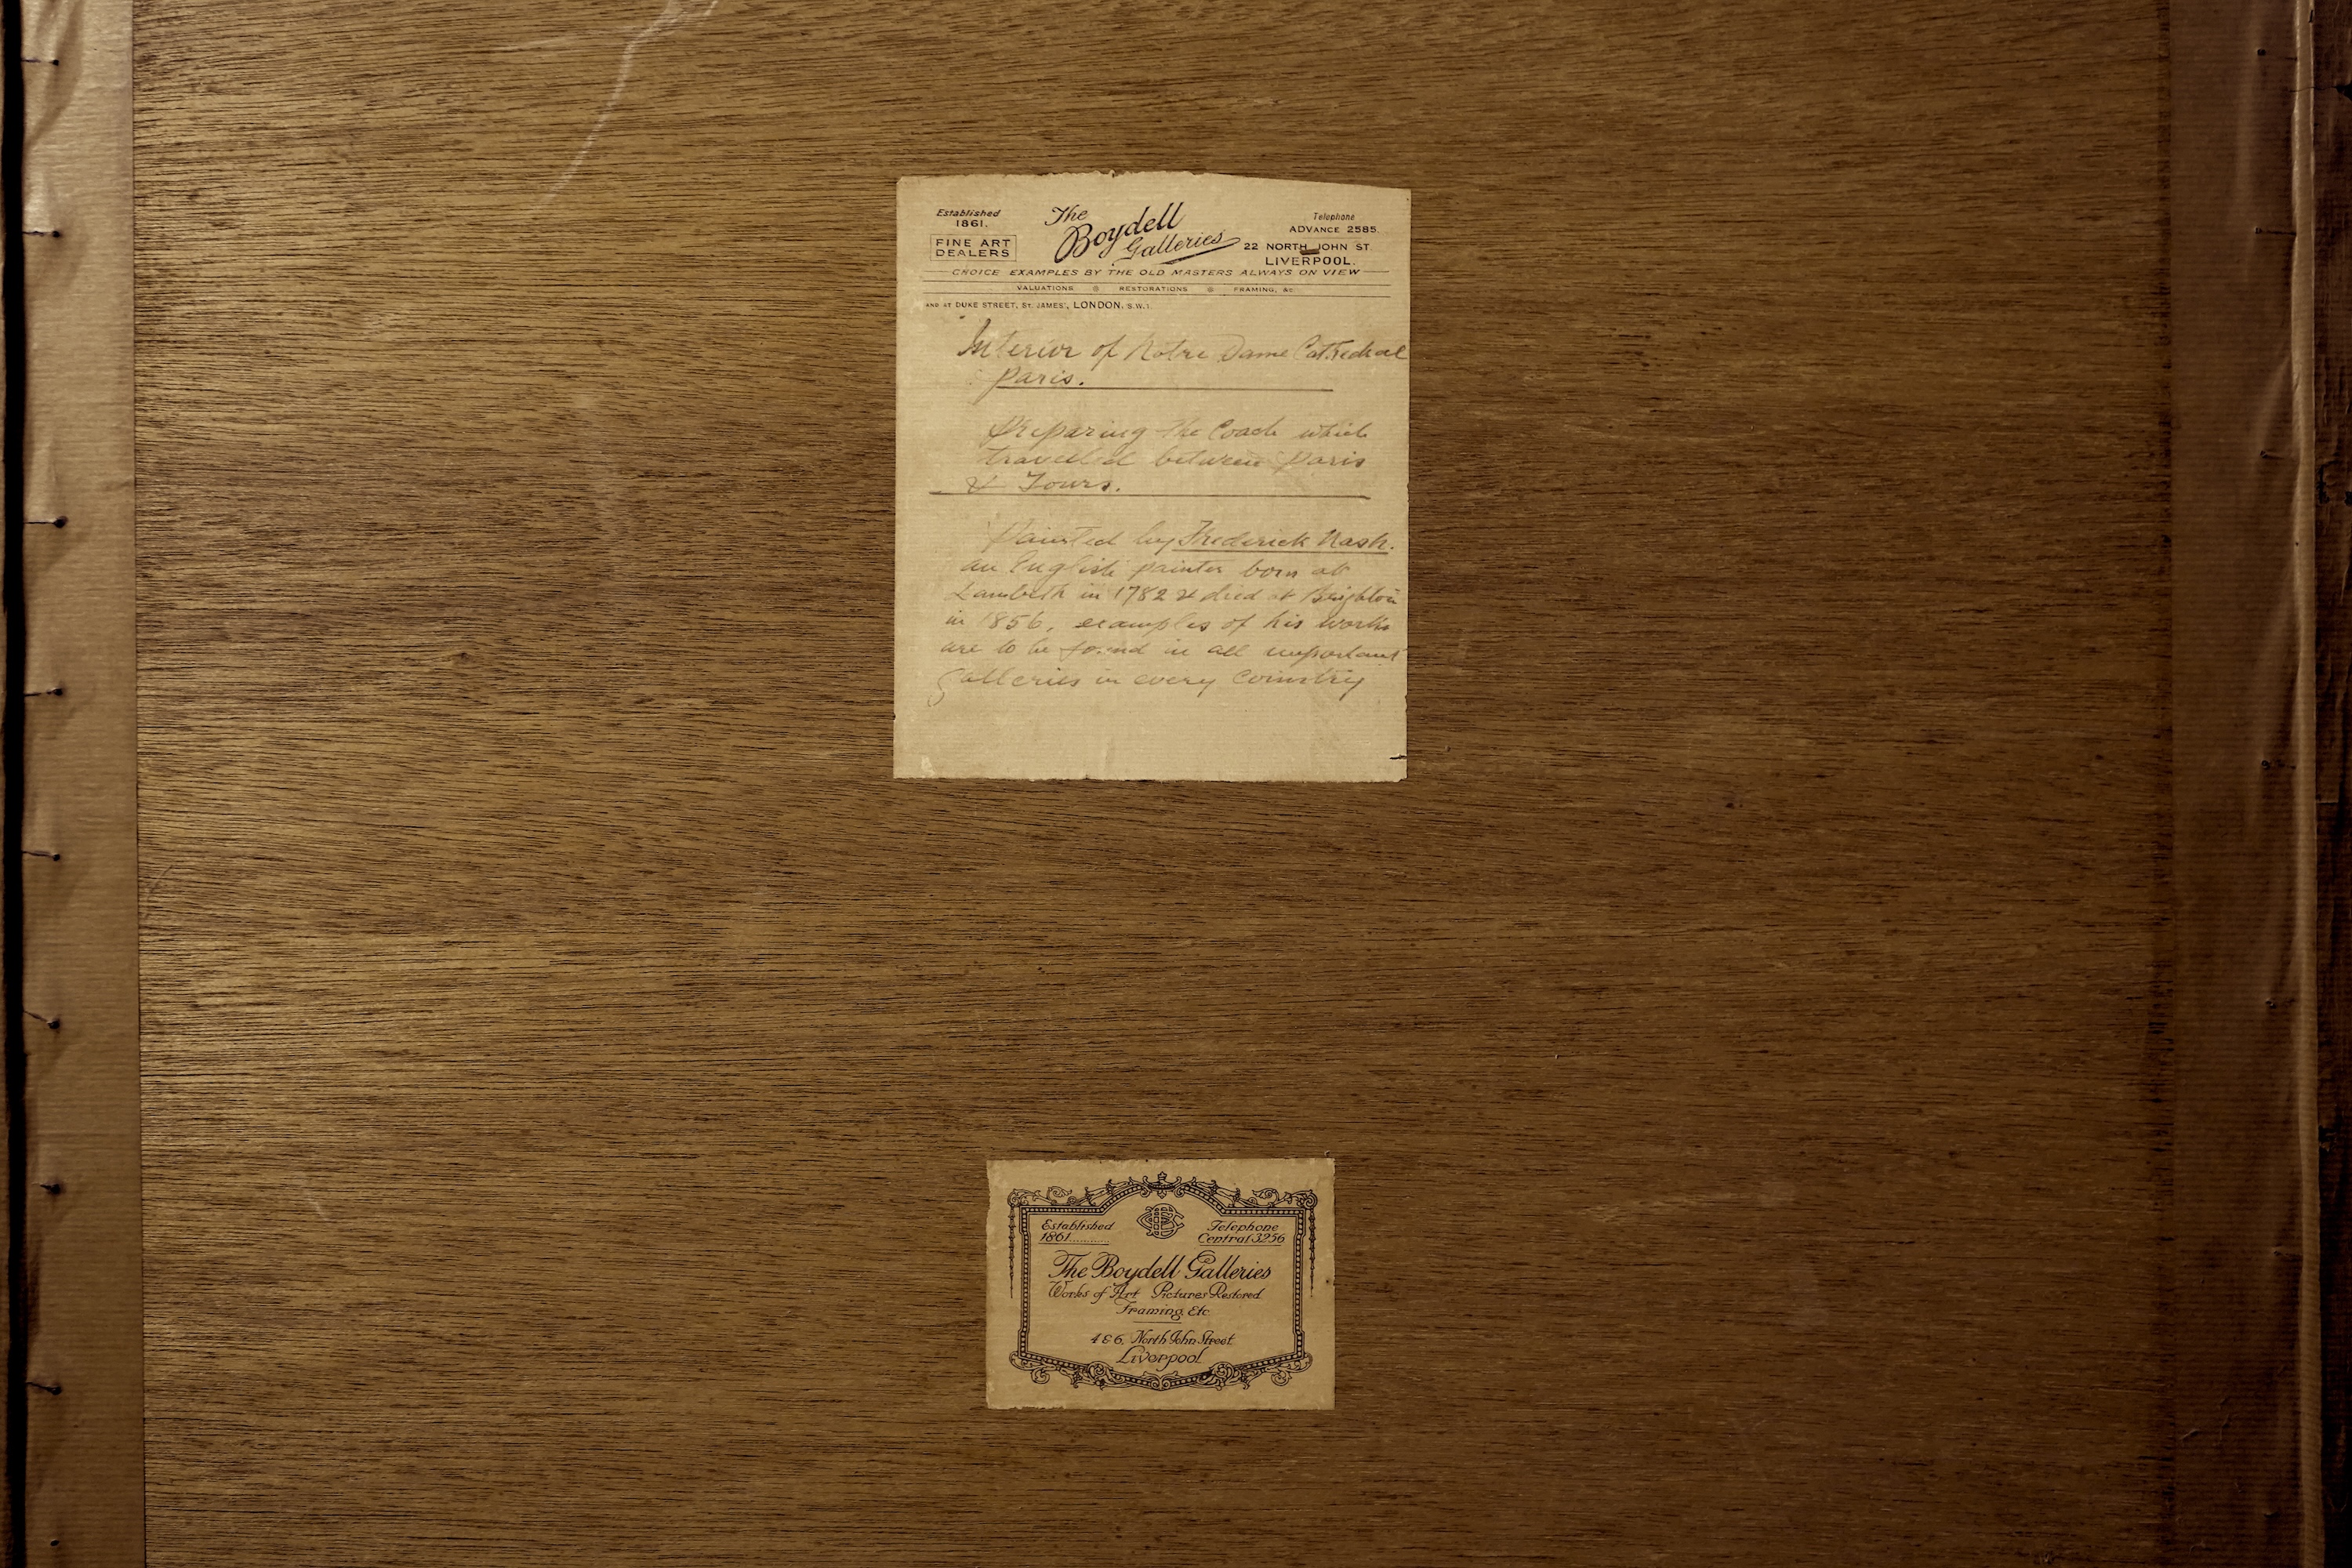 Established
1861.
FINE ART
DEALERS
The
Boydell
Galleries
Telephone
ADVANCE 2585.
22 NORTH JOHN ST.
LIVERPOOL.
CHOICE EXAMPLES BY THE OLD MASTERS ALWAYS ON VIEW
VALUATIONS RESTORATIONS FRAMING, &c
AND AT DUKE STREET, ST. JAMES', LONDON. S.W.1.
Interior of Notre Dame Cathedral
Paris.
Preparing the Coach which
travelled between Paris
& Tours.
Painted by Frederick Nash.
an English painter born at
Lambeth in 1782 & died at Brighton
in 1856. examples of his works
are to be found in all important
galleries in every country
Established
1861
Telephone
Central 3256
The Boydell Galleries
Works of Art Pictures Restored
Framing, Etc
4 & 6, North John Street
Liverpool